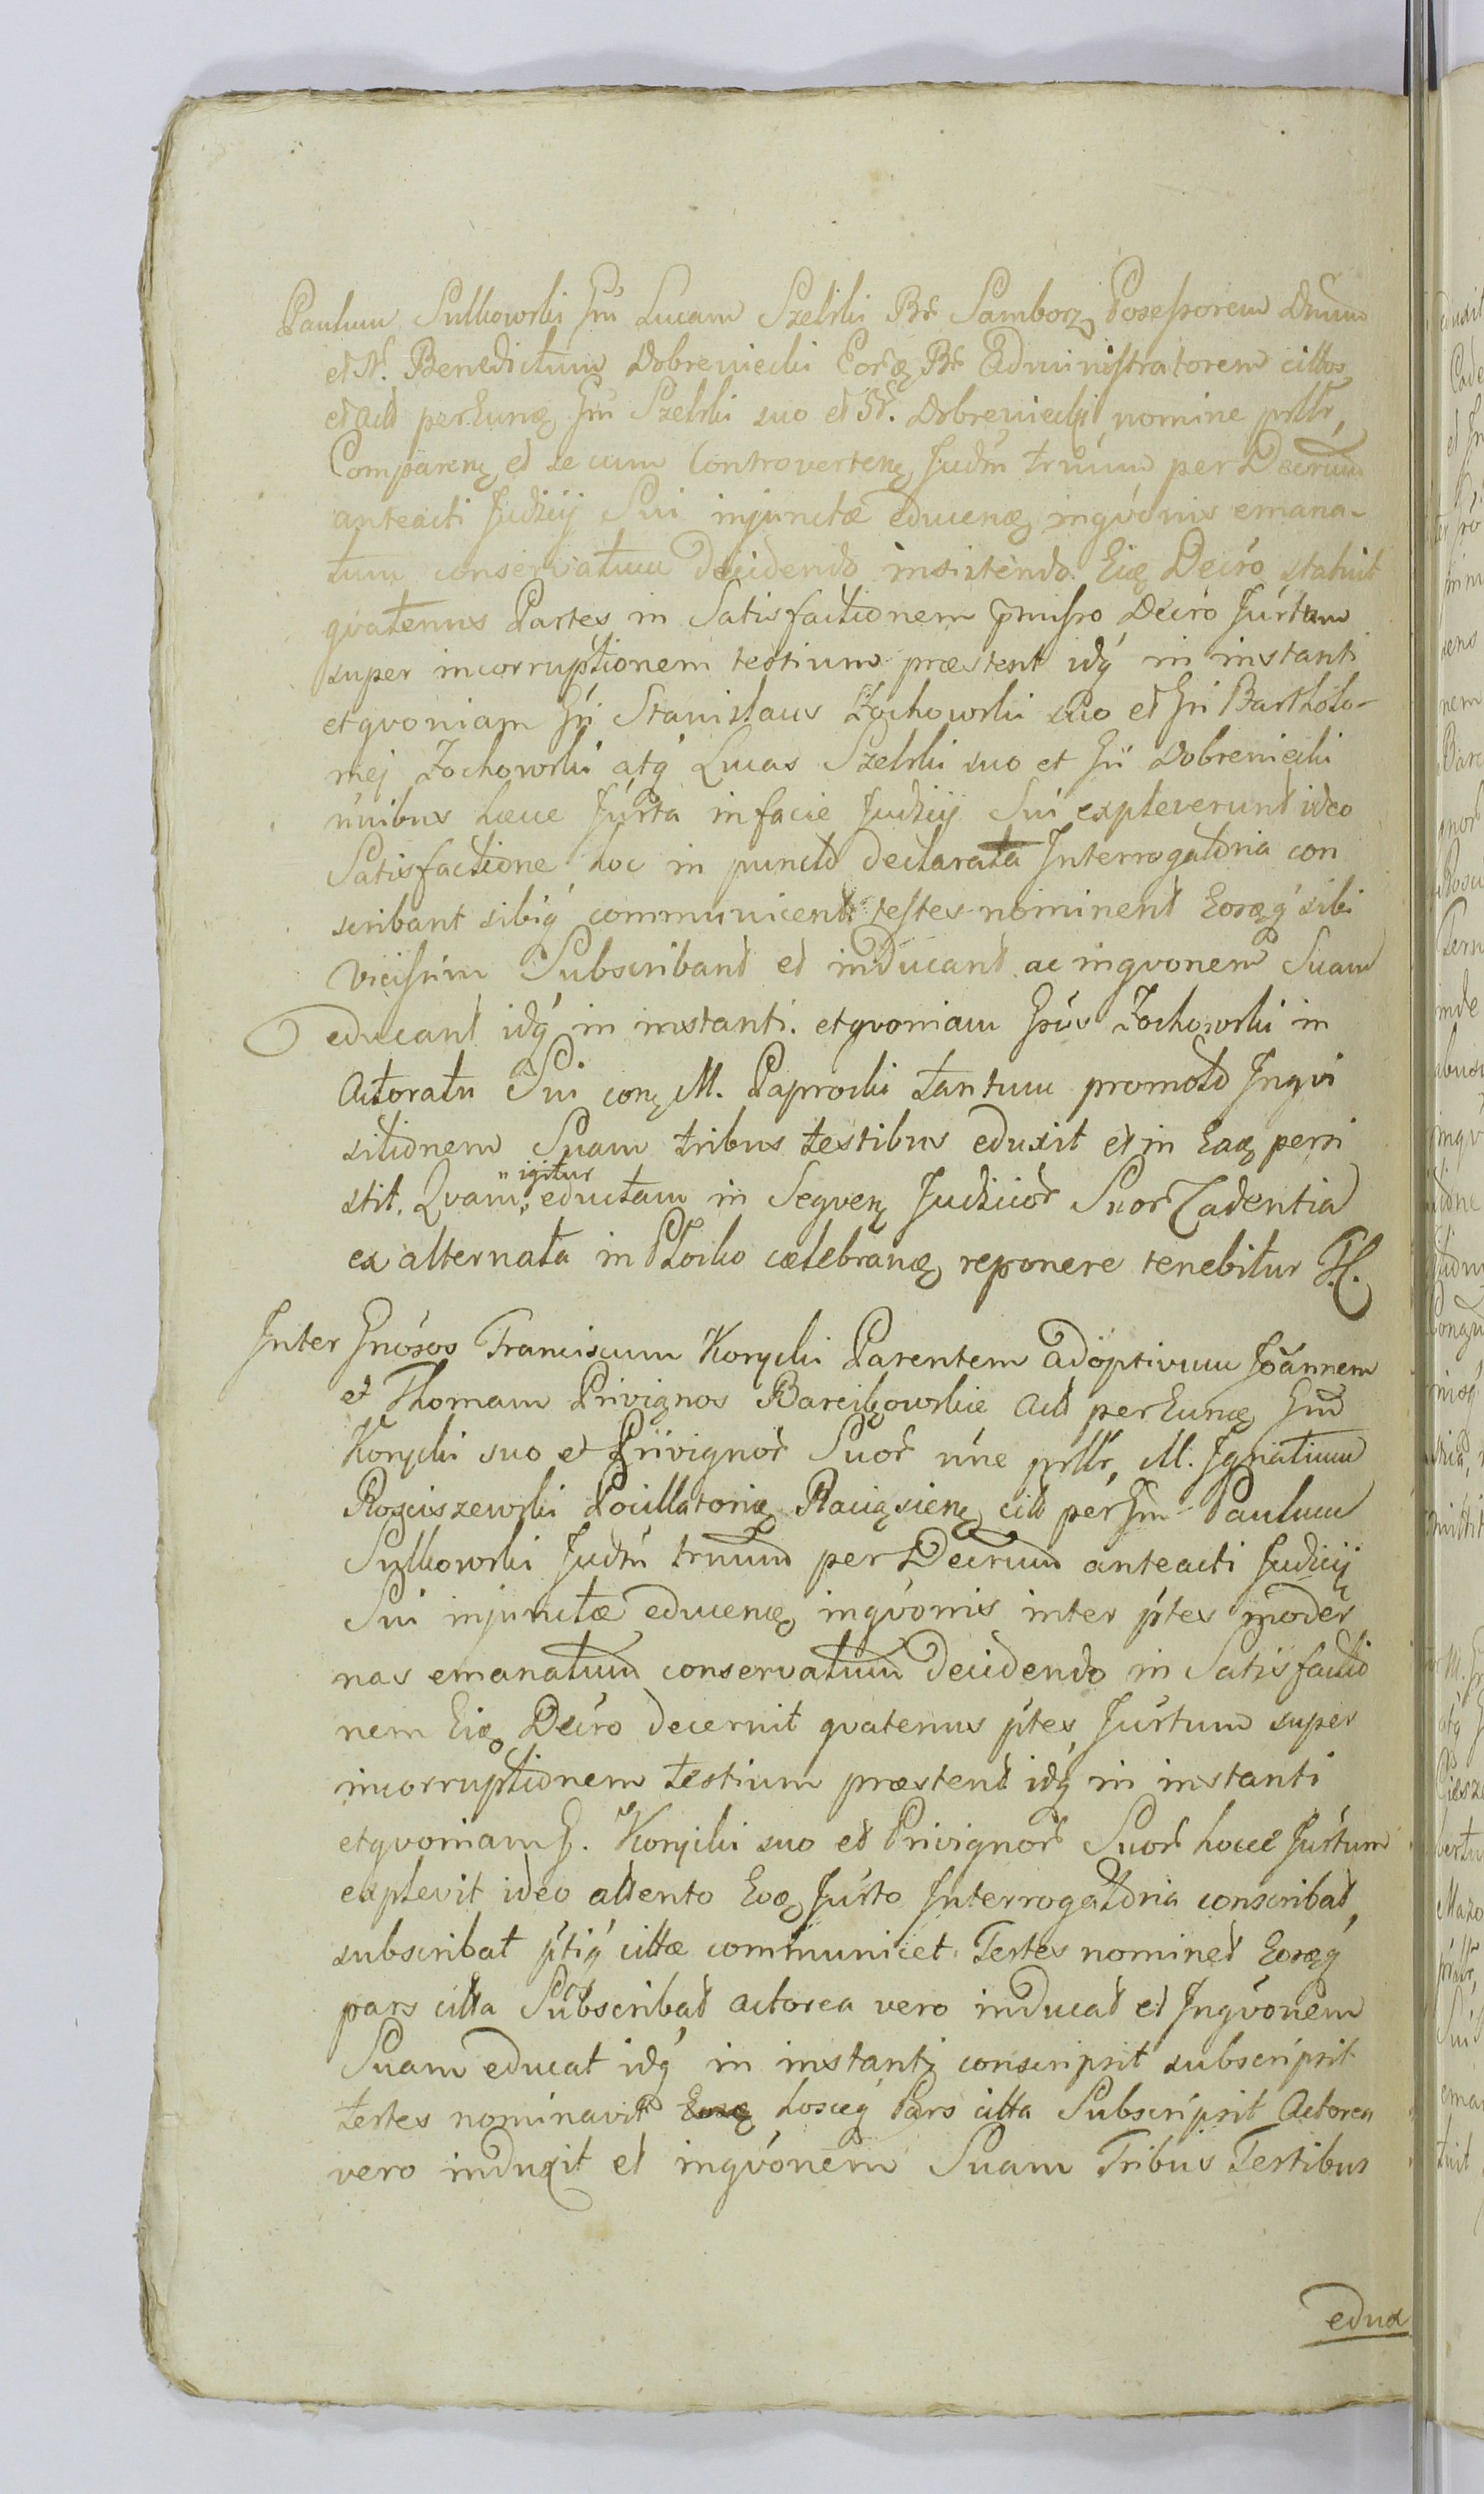 Paulum Sulkowski Gn̄ Lucam Szelski Br̄ Samborz Possessorem Dnum
et N. Benedictum Dobreniecki Eorą Br̄ Administratorem cittos
et act̄ perEunq Gn̄ Szelski suo et N. Dobreniecki nomine pr̄lr,
Comparenq et se cum Controvertenq Judm̄ trnum per Decrum
anteacti Judicij Sui injunctæ educenq ingvonis emana-
tum conservatum decidendo insistendo Eiq Decro statuit
qvatenus Partes in Satisfactionem p̄misso Decro Jurtum
super incorruptionem testium præstent idq́ in instanti
et qvoniam Gn̄ Stanislaus Zochowski suo et Gn̄ Bartholo-
mej Zochowski atq́ Lucas Szelski suo et Gn̄ Dobreniecki
nnibus hæce Jurta in facie Judicij Sui expleverunt ideo
Satisfactione hoc in puncto declarata Interrogatoria con
scribant sibiq́ communicent testes nominent Eosqq́ sibi
vicissim Subscribant et inducant ac ingvonem Suam
educant idq́ in instanti. et qvoniam Gsūs Zochowski in
Actoratu Sui conq M. Paprocki tantum promoto Inqvi
sitionem Suam tribus testibus eduxit et in Eaq persi
stit. Qvam „igitur„ eductam in Segvenq Judicior̄ Suor̄ Cadentia
ex alternata in Płocko cælebranq reponere tenebitur H.
Inter Gnōsos Franciscum Konycki Parentem adoptivum Joānnem
et Thomam Privignos Barcikowskie Act̄ perEunq Gn̄
Konycki suo et Privignor̄ Suor̄ nn̄e pr̄lr, M. Ignatium
Rosciszewski Pocillatoriq Raciąsienq citt̄ per Gn̄ Paulum
Sulkowski Judm̄ trnum per Decrum anteacti Judicij
Sui injunctæ educenq ingvonis inter p̄tes moder
nas emanatum conservatum decidendo in Satisfactio
nem Eiq Decro decernit qvatenus p̄tes Jurtum super
incorruptionem testium præstent idq́ in instanti
et qvoniam G. Konycki suo et Privignor̄ Suor̄ hocce Jurtum
explevit ideo attento Eoq Jurto Interrogatoria conscribat,
subscribat p̄tiq́ cittæ communicet Testes nominet Eosqq́
pars citta Subscribat actorea vero inducat et Ingvonem
Suam educat idq́ in instanti conscripsit subscripsit
testes nominavit hosceq́ Pars citta Subscripsit Actorea
vero induxit et ingvonem Suam Tribus Testibus
edux